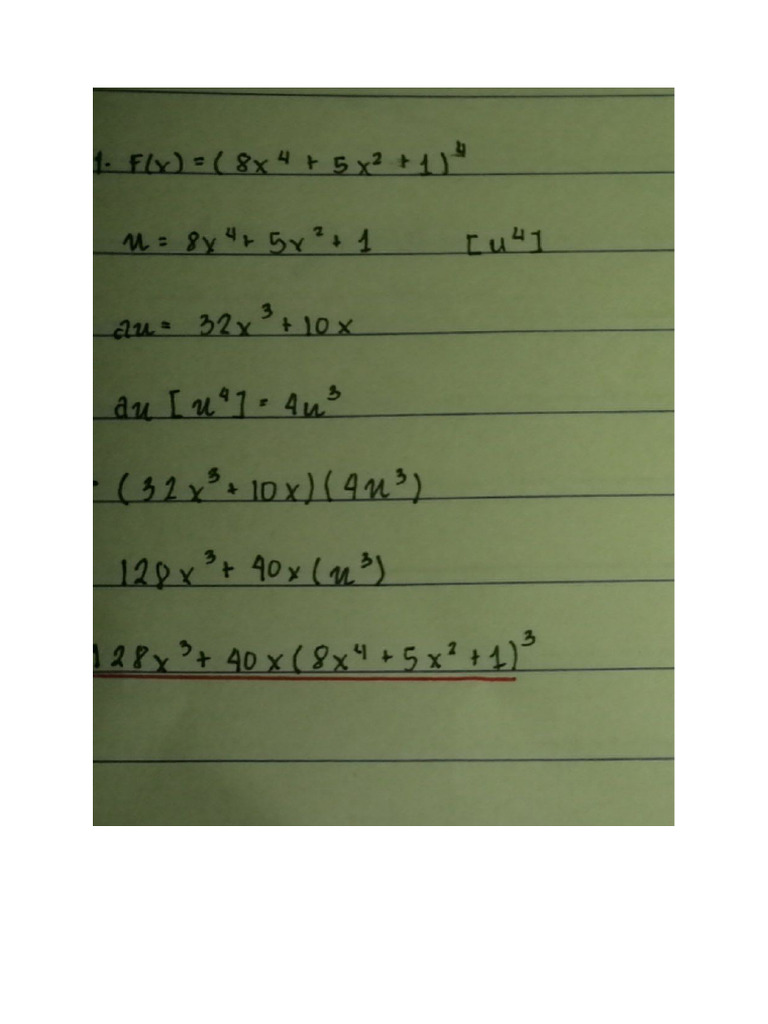 1. F(x) = ( 8x⁴ + 5x² + 1)⁴
u = 8x⁴ + 5x² + 1 [u⁴]
du = 32x³ + 10x
du [u⁴] = 4u³
(32x³ + 10x)(4u³)
128x³ + 40x(u³)
128x³ + 40x(8x⁴ + 5x² + 1)³